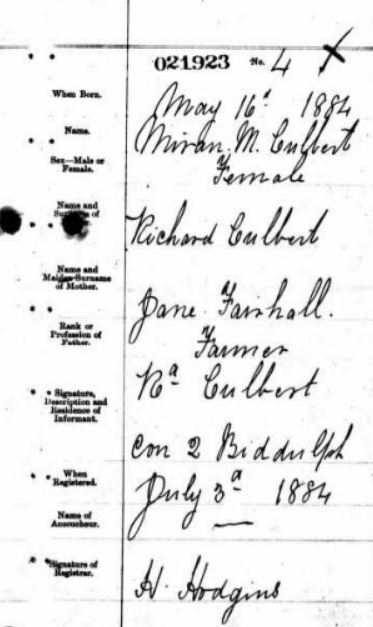 021923 No. 4
When Born.
May 16th 1884
Name.
Miran. M. Culbert
Sex—Male or
Female.
Female
Name and
Surname of
Richard Culbert
Name and
Maiden Surname
of Mother.
Jane Fairhall.
Rank or
Profession of
Father.
Farmer
Signature,
Description and
Residence of
Informant.
Rd Culbert
Con 2 Biddulph
When
Registered.
July 3d 1884
Name of
Accoucheur.
—
Signature of
Registrar.
H. Hodgins